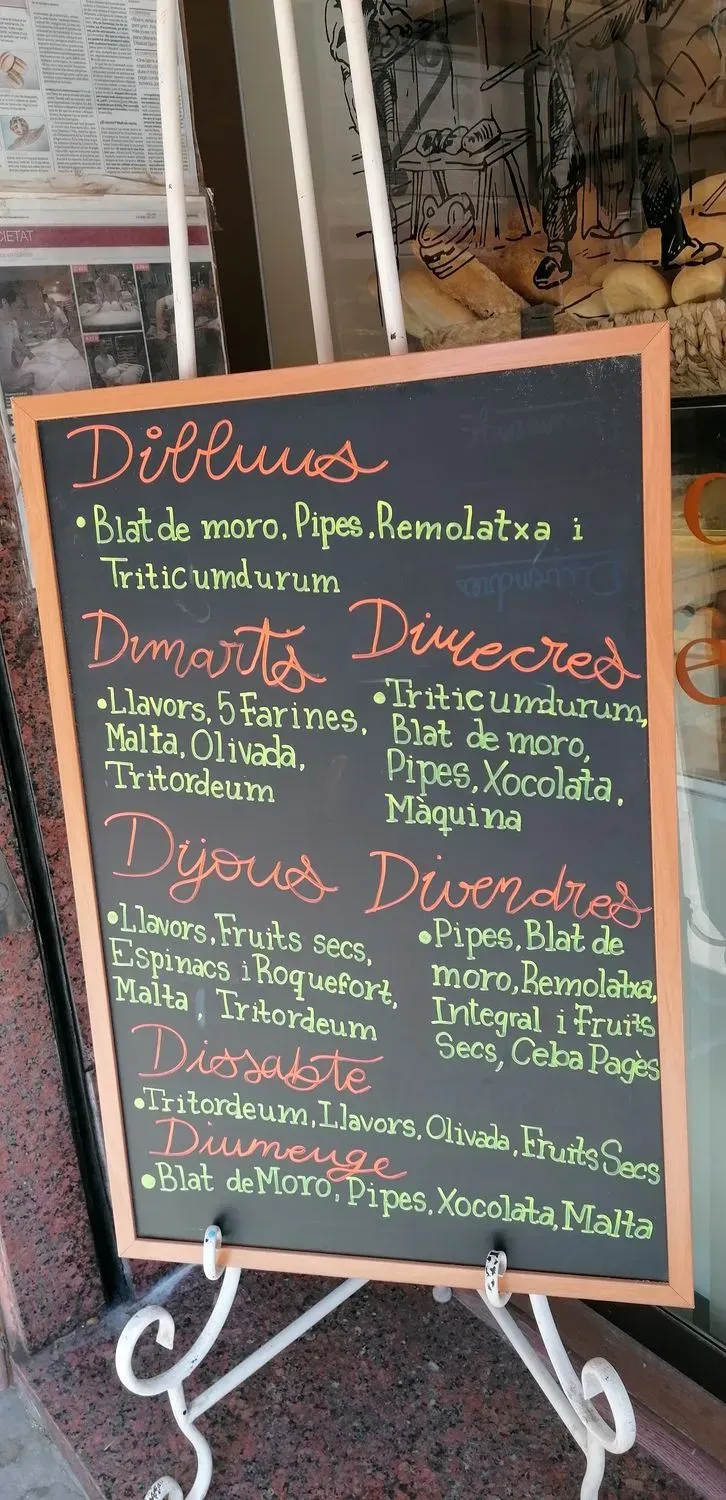 CIETAT
Dilluns
•Blat de moro, Pipes, Remolatxa i
Triticumdurum
Dimarts
•Llavors, 5 Farines,
Malta, Olivada,
Tritordeum
Dimecres
•Triticumdurum,
Blat de moro,
Pipes, Xocolata,
Màquina
Dijous
•Llavors, Fruits secs,
Espinacs i Roquefort,
Malta, Tritordeum
Divendres
•Pipes, Blat de
moro, Remolatxa,
Integral i Fruits
Secs, Ceba Pagès
Dissabte
•Tritordeum, Llavors, Olivada, Fruits Secs
Diumenge
•Blat de Moro, Pipes, Xocolata, Malta